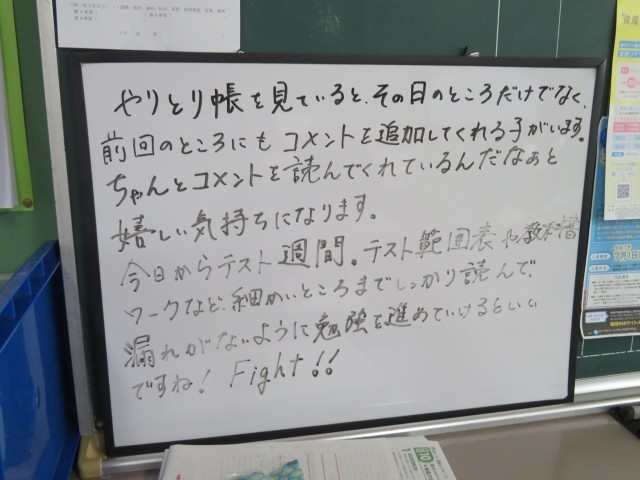 やりとり帳を見ていると、その日のところだけでなく、
前回のところにもコメントを追加してくれる子がいます。
ちゃんとコメントを読んでくれているんだなぁと
嬉しい気持ちになります。
今日からテスト週間。テスト範囲表や教科書
ワークなど、細かいところまでしっかり読んで、
漏れがないように勉強を進めていけるといい
ですね! Fight!!